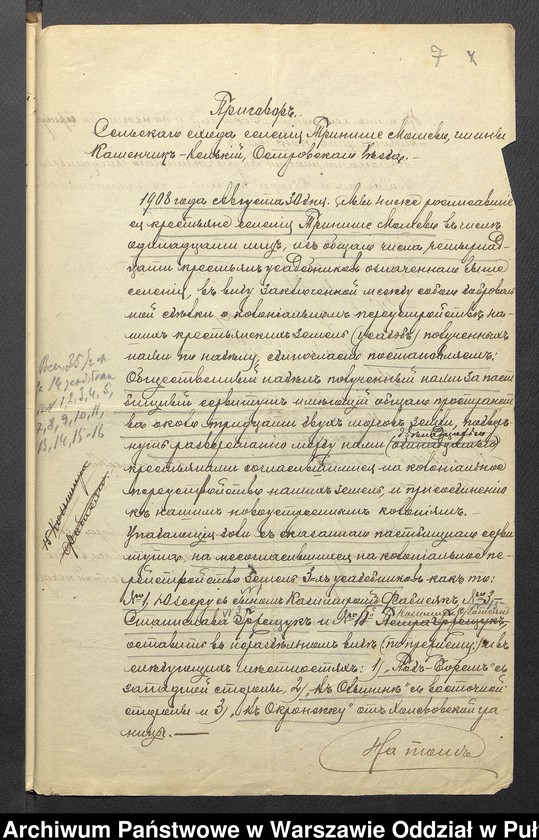 7
Приговоръ.
Сельскаго схода селенія Тринише Мошево, гмины
Каменчикъ-Вельки, Островскаго уѣзда. —
1908 года Августа 30 дня. Мы ниже росписавшіе
ся крестьяне селенія Тринише Мошево въ числѣ
одинадцати лицъ, изъ общаго числа четырнад-
цати крестьянъ усадебниковъ означеннаго выше
селенія, въ виду заключенной между собою доброволь
ной сдѣлки о колоніальномъ переустройствѣ на-
шихъ крестьянскихъ земель (усадьбъ) полученныхъ
нами по надѣлу, единогласно постановляемъ:
Общественный надѣлъ полученный нами за паст
бищный сервитутъ имѣющій общаго пространст
ва около тридцати двухъ морговъ земли, подверг
нуть разверстанію между нами
крестьянами согласившимися на колоніальное
переустройство нашихъ земель, и присоединенію
къ нашимъ новоустроеннымъ колоніямъ. —
Упадающія доли съ сказаннаго пастбищнаго серви
тута, на несогласившихся на колоніальное пе-
реустройство земель 3-хъ усадебниковъ какъ то:
№ 1, Юзефу съ сыномъ Казимиромъ Фабисякъ, № 3
Станислава и № 15
оставить въ нераздѣльномъ видѣ и въ
слѣдующихъ мѣстностяхъ: 1) „Подъ-Боремъ“ съ
западной стороны, 2) „къ“ съ восточной
стороны и 3) „къ Окронжку“ отъ гра-
ницы. —
На томъ
Всего 35
и 14 усадьбами
№ 1, 2, 3, 4, 5,
7, 8, 9, 10, 11,
13, 14, 15-16
Archiwum Państwowe w Warszawie Oddział w Puł